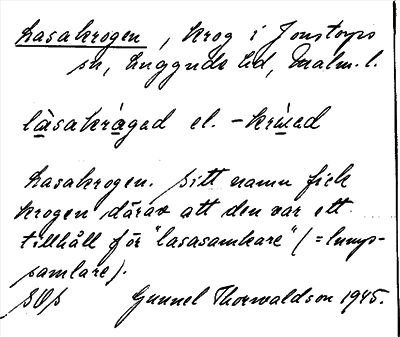 Lasakrogen, krog i Jonstorps
sn, Luggude hd, Malm. l.
làsakrågad el. -kr
Lasakrogen. Sitt namn fick
krogen därav att den var ett
tillhåll för "lasasamlare" (= lump-
samlare).
SOS Gunnel Thorwaldson 1945.